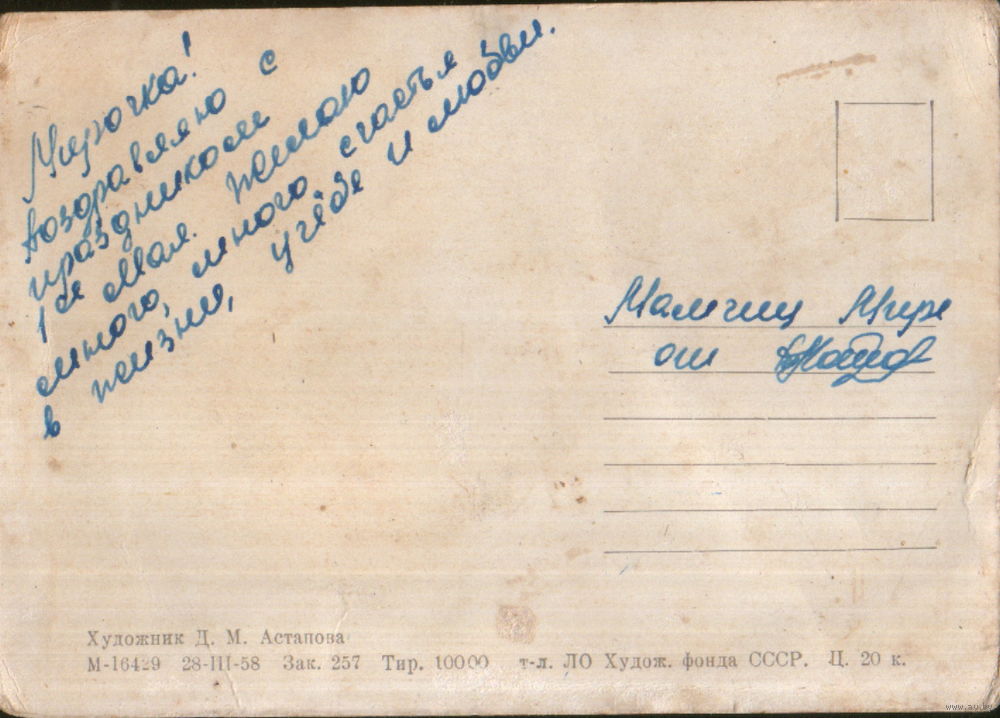 Мирочка!
Поздравляю с
праздником
1ое Мая. Желаю
много, много счастья
в жизни, учёбе и любви.
Мамчиц Мире
от
Художник Д. М. Астапова
М-16429 28-III-58 Зак. 257 Тир. 10000 т-л. ЛО Худож. фонда СССР. Ц. 20 к.
www.au.by